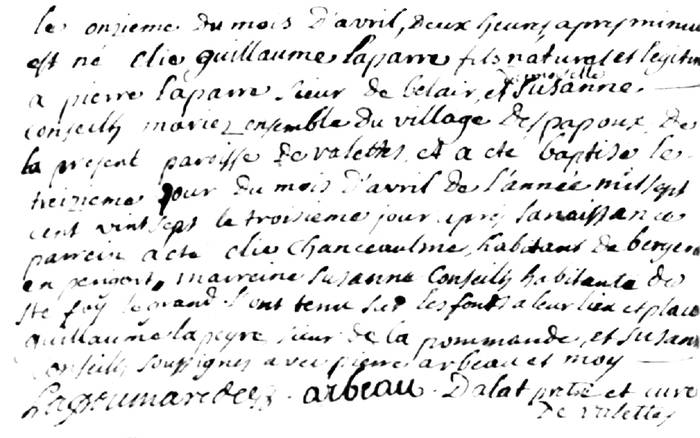 le onzieme du mois d'avril, deux heures apres minui
est né elie guillaume laparre fils naturel et legitim
a pierre laparre sieur de belair, et damoizelle suzanne
Conseilh mariez ensemble du village des papoux de
la present paroisse de valettes, et a ete baptise le
treizieme jour du mois d'avril de l'année mil sept
cent vint sept le troisieme jour apres sa naissance
parrein a ete elie chanceaulme, habitant de berger
en perigort, marreine suzanne Conseilh habitante de
ste foy le grand. s'ont tenu sur les fonts a leur lieu et place
guillaume lapeyre sieur de la pommande, et susan
Conseilh, soussignes avec pierre arbeau et moy
arbeau. Dalat pretre et curé
de valettes